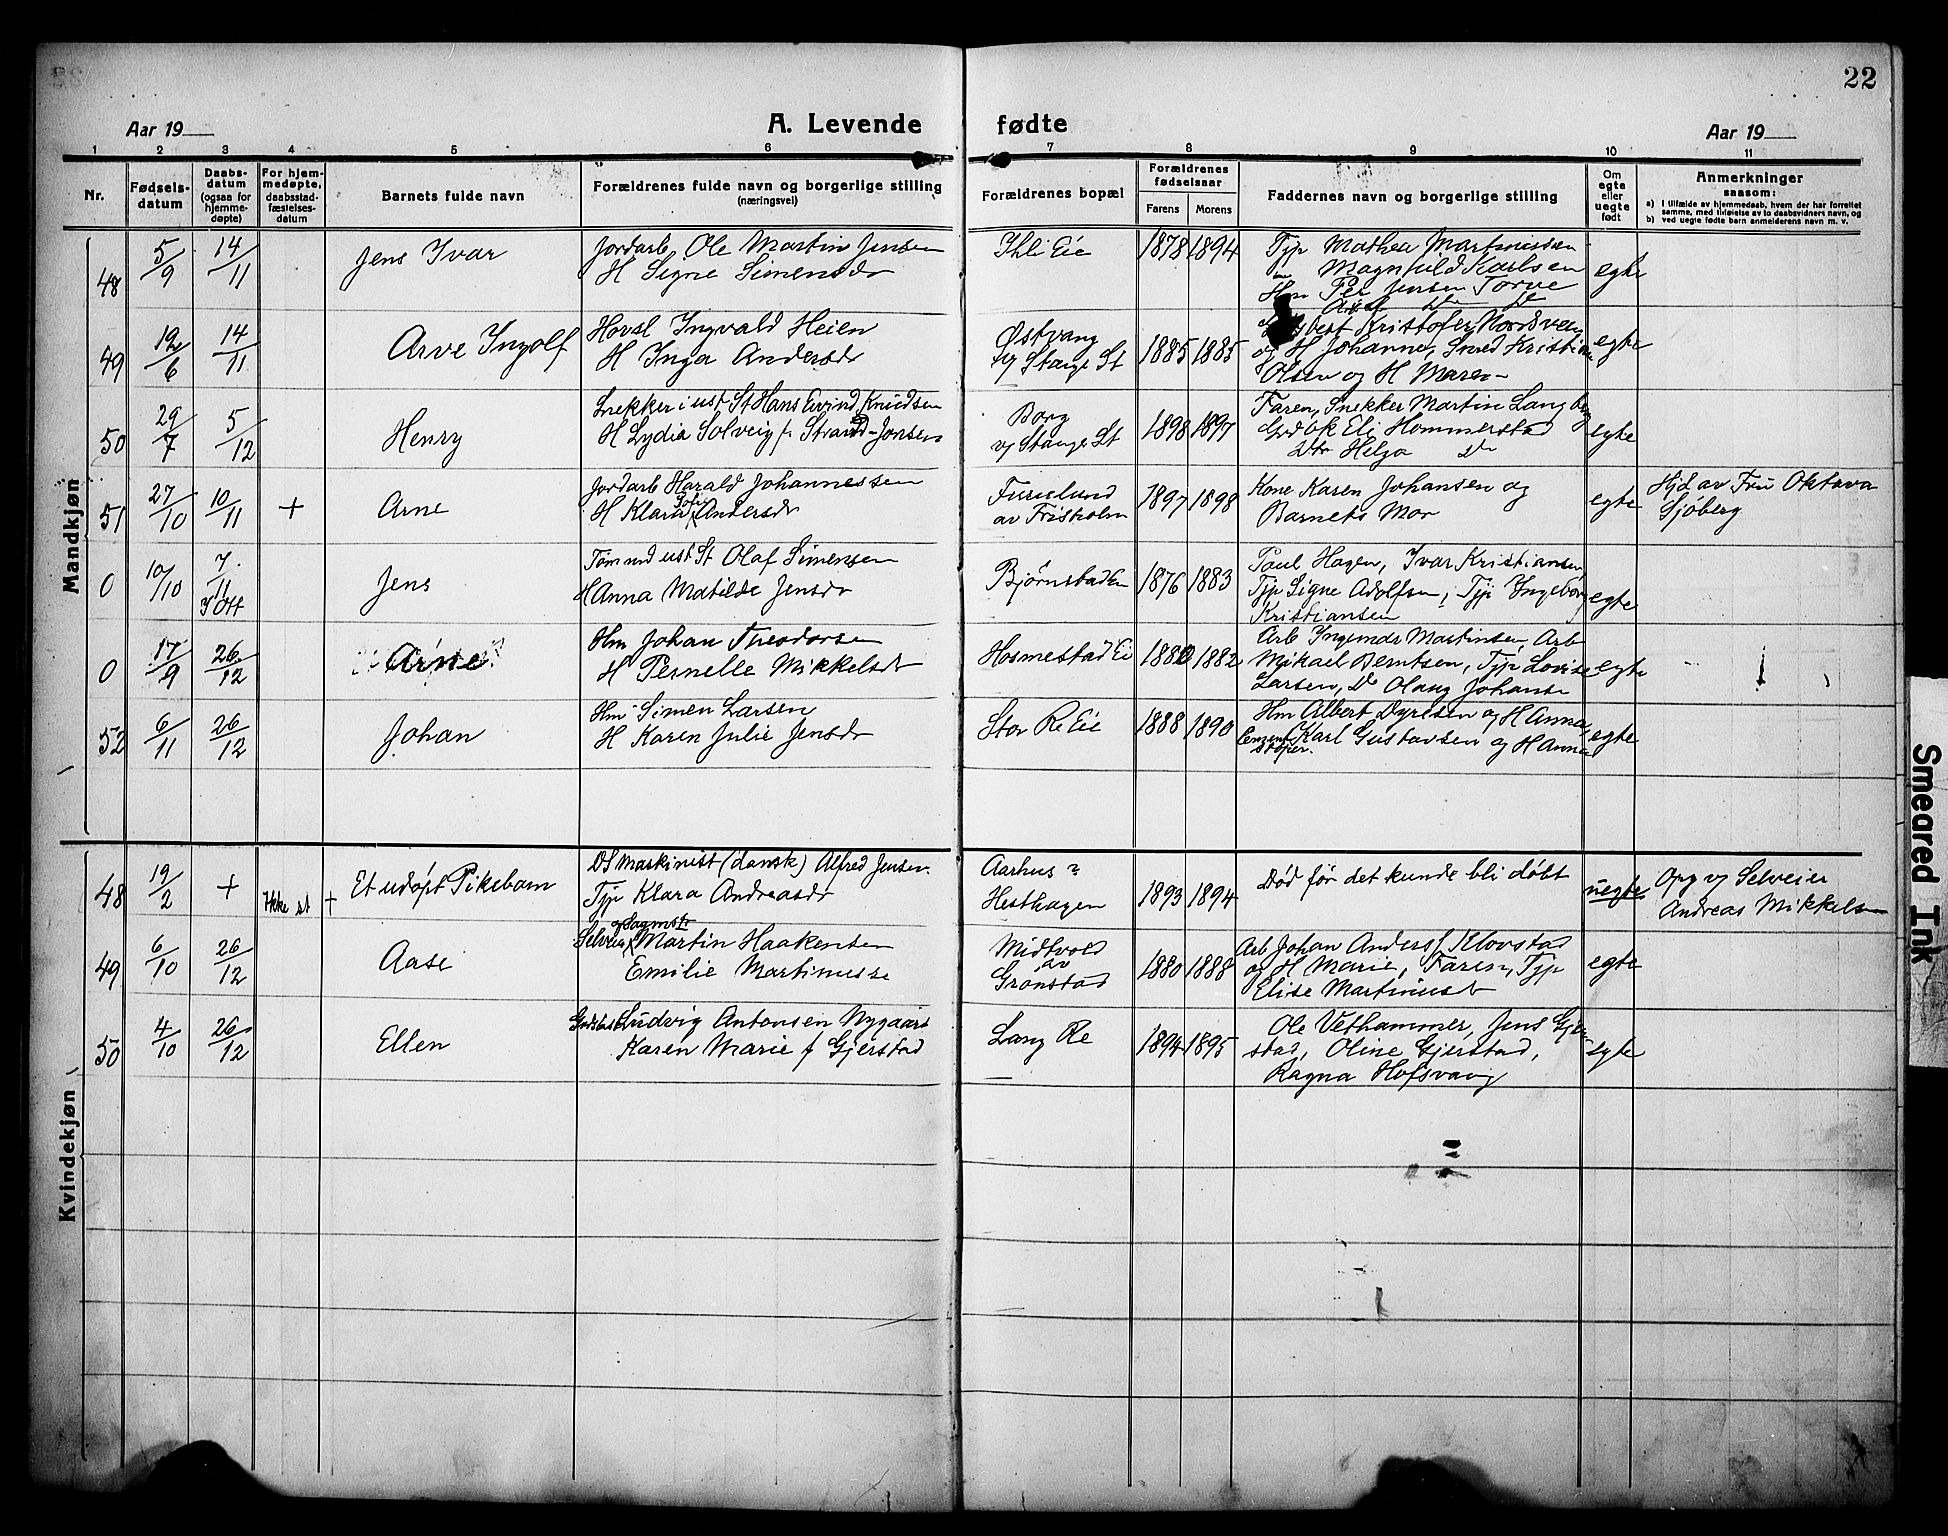 22
Aar 19
A. Levende fødte
Aar 19
1 2 3 4 5 6 7 8 9 10 11
Nr.
Fødsels-
datum
Daabs-
datum
(ogsaa for
hjemme-
døpte)
For hjem-
medøpte,
daabsstad-
fæstelses-
datum
Barnets fulde navn
Forældrenes fulde navn og borgerlige stilling
(næringsvei)
Forældrenes bopæl
Forældrenes
fødselsaar
Farens
Morens
Faddernes navn og borgerlige stilling
Om
egte
eller
uegte
født
Anmerkninger
saasom:
a) I tilfælde av hjemmedaab, hvem der har forrettet
samme, med tilføielse av to daabsvidners navn, og
b) ved uegte fødte barn anmelderens navn m. v.
Mandkjøn
48 5/9 14/11 Jens Ivar
Jordarb. Ole Martin Jensen
H Signe Simensdr
Ihli Eie 1878 1894
Typ Mathea Martinussen
Magnhild Karlsen
Hm Per Jensen Torve
egte
49 12/6 14/11 Arve Ingolf
Hovsl Ingvald Heien
H Inga Andersdr
Østvang
v/ Stange St
1885 1885
Kristofer Nordsveen
og H Johanne, Smed Kristian
Olsen og H Maren
egte
50 29/7 5/12 Henry
Snekker i ust St Hans Eivind Knudsen
H Lydia Solveig f. Strand-Jonsen
Borg
v/ Stange St
1898 1897
Faren, Snekker Martin Langberg
Grdbk Eli Hommerstad
Dtr Helga Do
egte
51 27/10 10/11 + Arne
Jordarb Harald Johannessen
H Klara Sofie Andersdr
Furulund
av Frisholm
1897 1898
Kone Karen Johansen og
Barnets Mor
egte
Hjd av Fru Oktava
Sjöberg
0 10/10 7/11 Jens
Tømmd ust St Olaf Simensen
H Anna Matilde Jensdr
Bjørnstad Ei
1876 1883
Paul Hagen, Ivar Kristiansen
Typ Signe Adolfsen, Typ Ingeborg
Kristiansen
egte
0 17/9 26/12 Arne
Hm Johan Theodorsen
H Pernelle Mikkelsdr
Hosmestad Ei
1880 1882
Arb Ingemar Martinsen, Arb
Mikael Berntsen, Typ Lovise
Larsen, Do Olaug Johanse
egte
52 6/11 26/12 Johan
Hm Simen Larsen
H Karen Julie Jensdr
Stor Re Eie
1888 1890
Hm Albert Dyresen og H Anna,
Cementstøper Karl Gustavsen og H Anna
egte
Kvindekjøn
48 19/2 + Ikke st + Et udøpt Pikebarn
DS Maskinist (dansk) Alfred Jensen
Typ Klara Andreasdr
Aarhus ?
Hesthagen
1893 1894
Død før det kunde bli døbt
uegte
Opg v/ Selveier
Andreas Mikkelsen
49 6/10 26/12 Aase
og Sagmstr
Selveier Martin Haakensen
Emilie Martinusse
Midtvold
av
Grønstad
1880 1888
Arb Johan Anders Klovstad
og H Marie, Faren, Typ
Elise Martinusdr
egte
50 4/10 26/12 Ellen
Ludvig Antonsen Nygaard
Karen Marie f Gjerstad
Lang Re
1894 1895
Ole Vethammer, Jens Gjer-
stad, Oline Gjerstad,
Ragna Hofsvang
egte
Smeared Ink